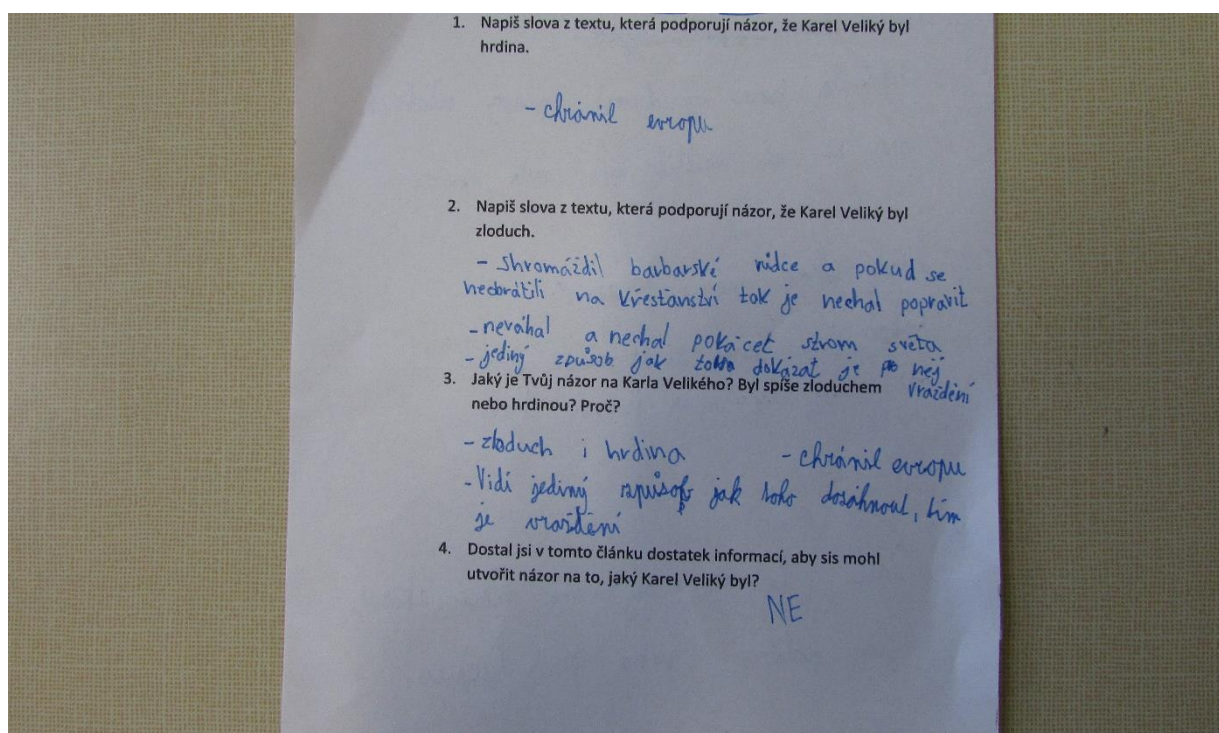 1. Napiš slova z textu, která podporují názor, že Karel Veliký byl
hrdina.
- chránil evropu
2. Napiš slova z textu, která podporují názor, že Karel Veliký byl
zloduch.
- Shromáždil barbarské vůdce a pokud se
neobrátili na křesťanství tak je nechal popravit
- neváhal a nechal pokácet strom světa
- jediný způsob jak toho dokázat je po něj
vraždění
3. Jaký je Tvůj názor na Karla Velikého? Byl spíše zloduchem
nebo hrdinou? Proč?
- zloduch i hrdina - chránil evropu
- Vidí jediný způsob jak toho dosáhnout, tím
je vraždění
4. Dostal jsi v tomto článku dostatek informací, aby sis mohl
utvořit názor na to, jaký Karel Veliký byl?
NE